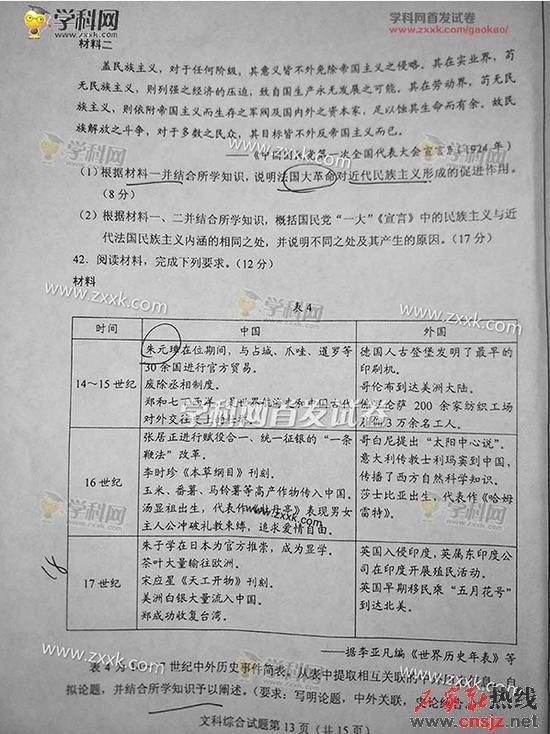 学科网
www.zxxk.com
学科网首发试卷
www.zxxk.com/gaokao/
材料二
盖民族主义,对于任何阶级,其意义皆不外免除帝国主义之侵略。其在实业界,苟
无民族主义,则列强之经济的压迫,致自国生产永无发展之可能。其在劳动界,苟无民
族主义,则依附帝国主义而生存之军阀及国内外之资本家,足以蚀其生命而有余。故民
族解放之斗争,对于多数之民众,其目标皆不外反帝国主义而已。
——《中国国民党第一次全国代表大会宣言》(1924 年)
(1)根据材料一并结合所学知识,说明法国大革命对近代民族主义形成的促进作用。
(8 分)
(2)根据材料一、二并结合所学知识,概括国民党“一大”《宣言》中的民族主义与近
代法国民族主义内涵的相同之处,并说明不同之处及其产生的原因。(17 分)
42. 阅读材料,完成下列要求。(12 分)
材料
表 4
时间 中国 外国
14~15 世纪
朱元璋在位期间,与占城、爪哇、暹罗等
30 余国进行官方贸易。
废除丞相制度。
郑和七下西洋,是世界航海史和中国古代
对外交往史上的
德国人古登堡发明了最早的
印刷机。
哥伦布到达美洲大陆。
佛罗伦萨 200 余家纺织工场
雇佣 3 万余名工人。
16 世纪
张居正进行赋役合一、统一征银的“一条
鞭法”改革。
李时珍《本草纲目》刊刻。
玉米、番薯、马铃薯等高产作物传入中国。
汤显祖出生,代表作《牡丹亭》表现男女
主人公冲破礼教束缚,追求爱情自由。
哥白尼提出“太阳中心说”。
意大利传教士利玛窦到中国,
传播了西方自然科学知识。
莎士比亚出生,代表作《哈姆
雷特》。
17 世纪
朱子学在日本为官方推崇,成为显学。
茶叶大量输往欧洲。
宋应星《天工开物》刊刻。
美洲白银大量流入中国。
郑成功收复台湾。
英国入侵印度,英属东印度公
司在印度开展殖民活动。
英国早期移民乘“五月花号”
到达北美。
18
——据李亚凡编《世界历史年表》等
表 4 为 世纪中外历史事件简表。从表中提取相互关联的中外历史信息,自
拟论题,并结合所学知识予以阐述。(要求:写明论题,中外关联,史论结合。)
文科综合试题第 13 页(共 15 页)
石家庄热线
www.cnsjz.net